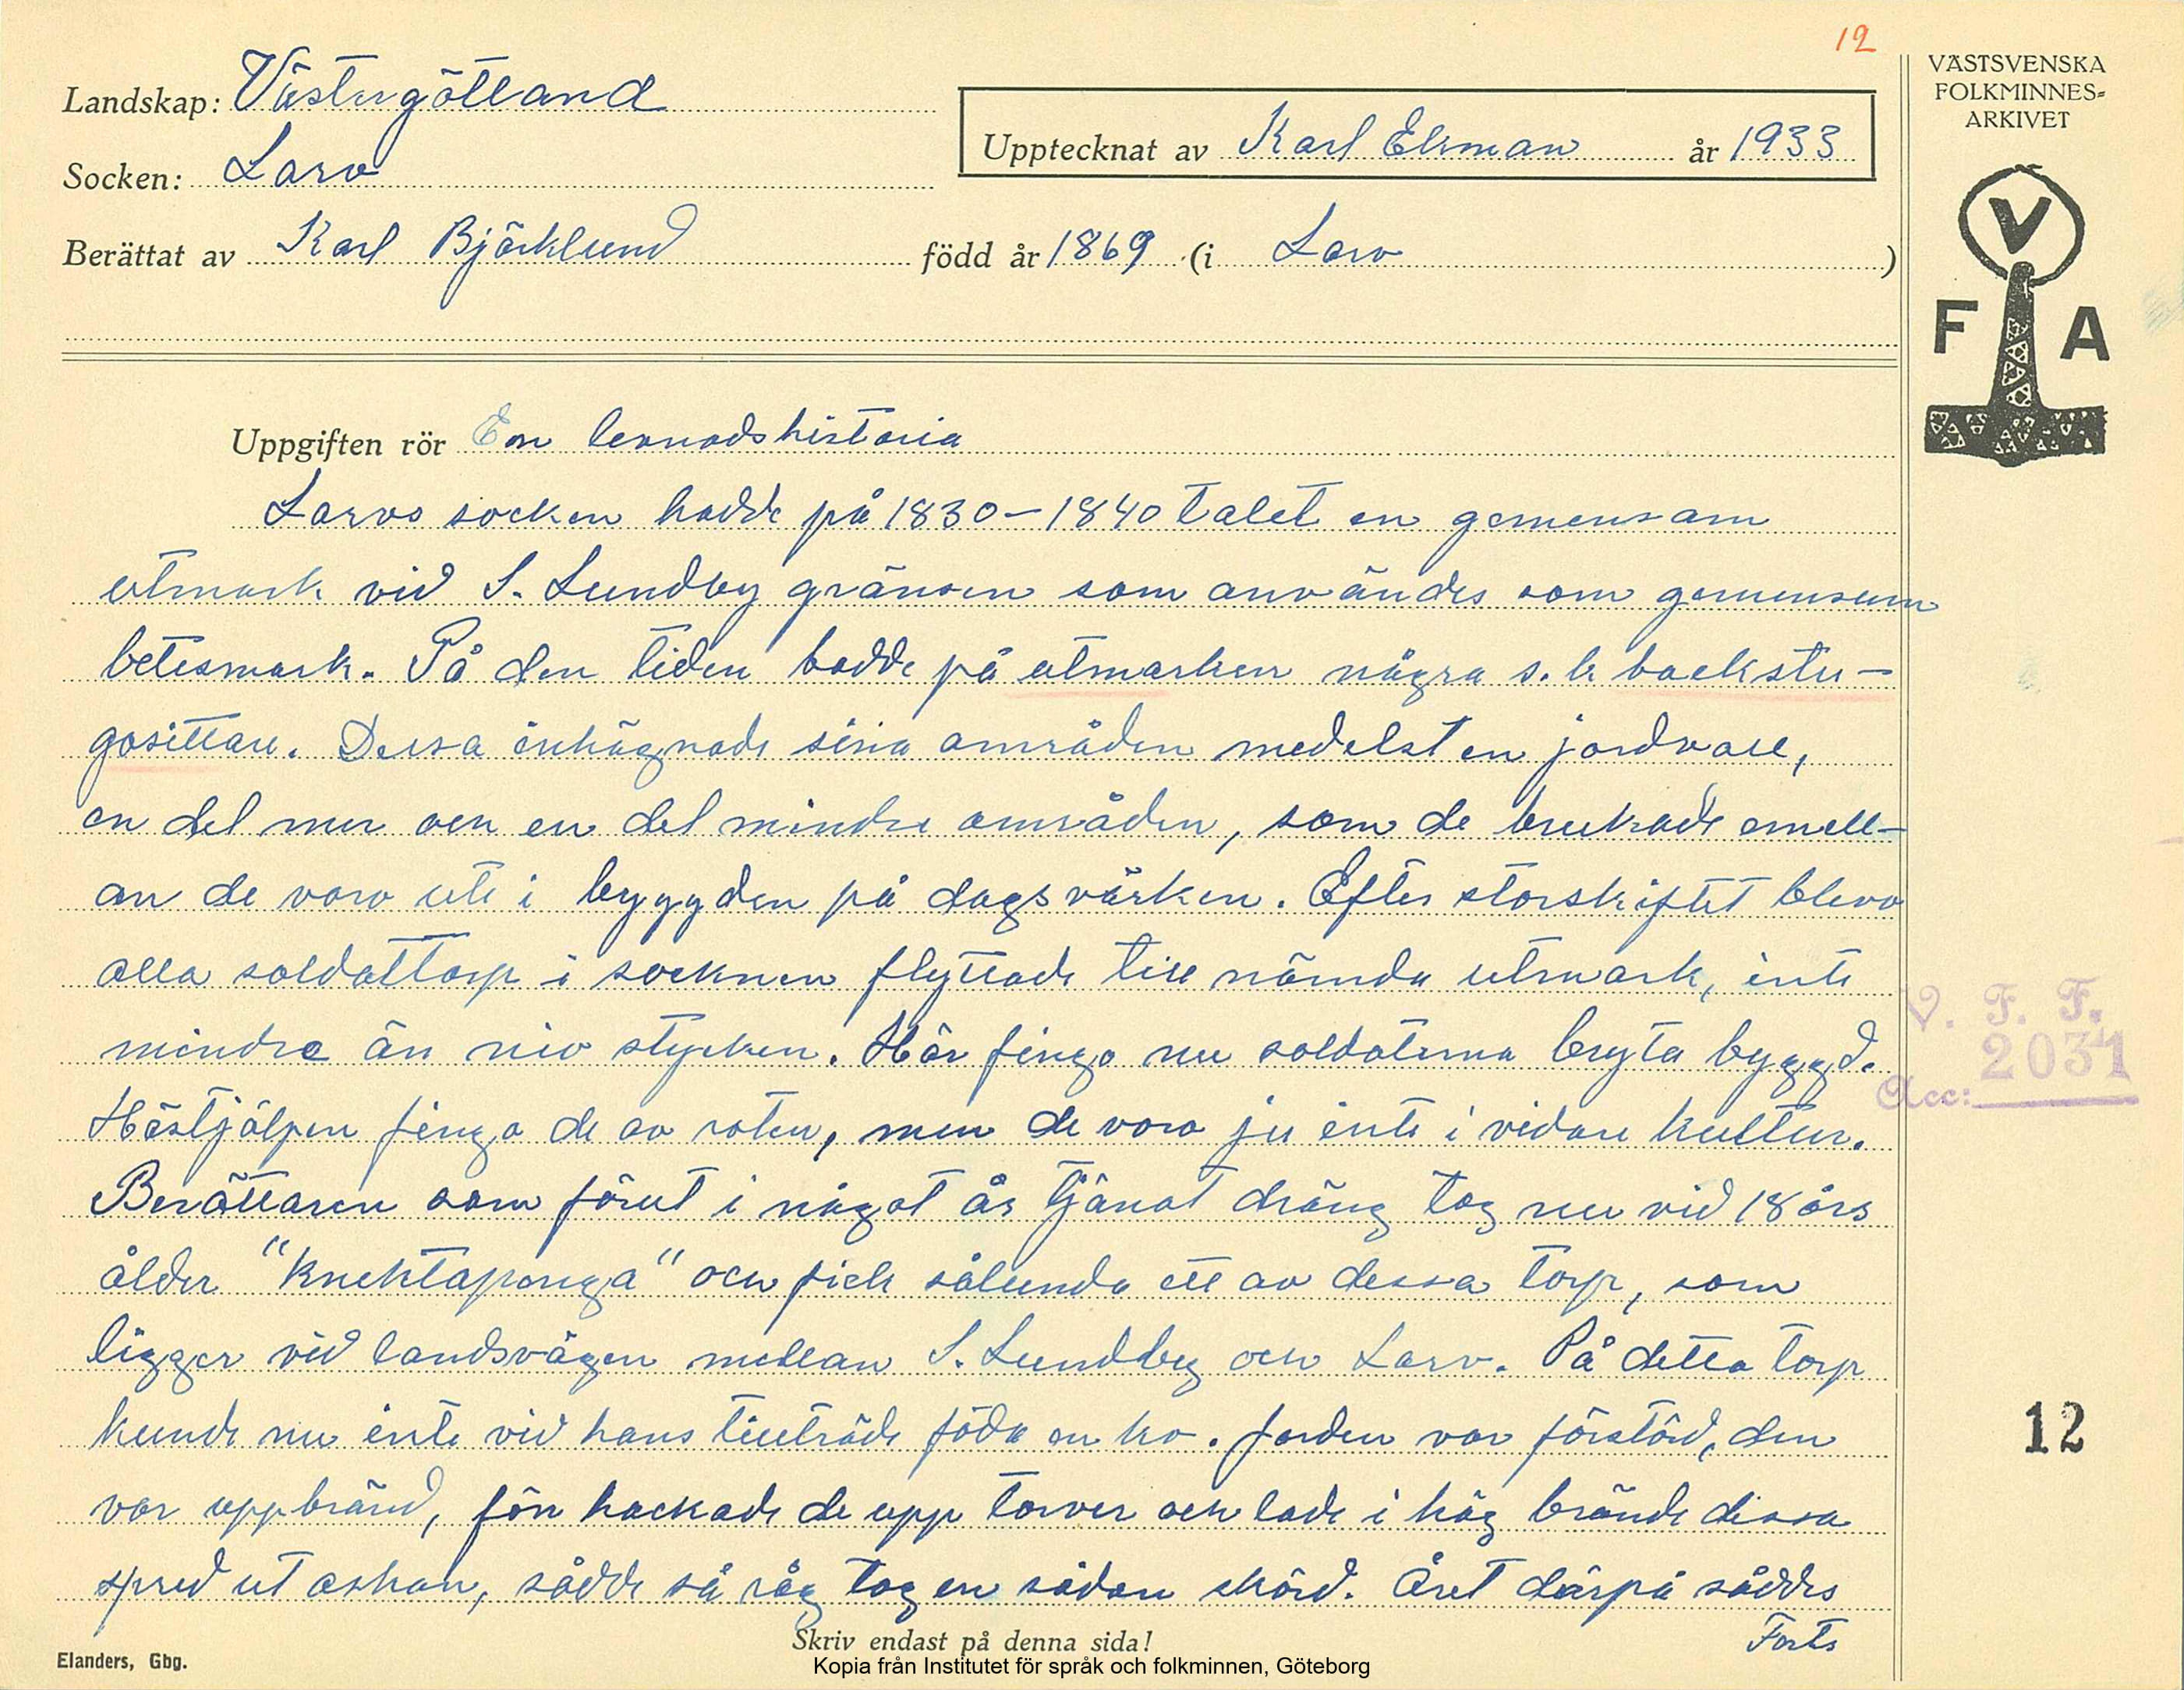 12
VÄSTSVENSKA
FOLKMINNES=
ARKIVET
Landskap: Västergötland
Upptecknat av Karl Ekman år 1933
Socken: Larv
Berättat av Karl Björklund född år 1869 (i Larv )
V
F A
Uppgiften rör En levnadshistoria
Larvs socken hadde på 1830-1840 talet en gemensam
utmark vid S. Lundby gränsen som användes som gemensam
betesmark. På den tiden bodde på utmarken några s.k backstu-
gosittare. Dessa inhägnade sina områden medelst en jordvall,
en del mer och en del mindre områden, som de brukade emell-
an de voro ute i byggden på dagsvärken. Efter storskiftet blevo
alla soldattorp i socknen flyttade till nämda utmark, inte
mindre än nio stycken. Här fingo nu soldaterna bryta byggd.
Hästjälpen fingo de av roten, men de voro ju inte i vidare kultur.
Berättaren som förut i något år tjänat dräng tog nu vid 18 års
ålder "knektapänga" och fick sålunda ett av dessa torp, som
ligger vid landsvägen mellan S. Lundby och Larv. På detta torp
kunde nu inte vid hans tillträde föda en ko. Jorden var förstörd, den
var uppbränd, förr hackade de upp torver och lade i hög brände dessa
spred ut askan, sådde så råg tog en sådan skörd. Året därpå såddes
Forts
V. F. F.
2031
Acc:
12
Skriv endast på denna sida!
Elanders, Gbg.
Kopia från Institutet för språk och folkminnen, Göteborg